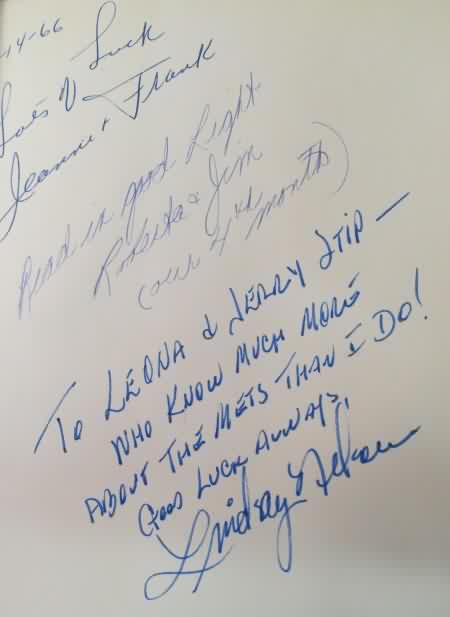 -14-66
Lots of Luck
Jeannie & Frank
Read in good Light
Roberta & Jim
(our 4th month)
To LEONA & JERRY STIP —
WHO KNOW MUCH MORE
ABOUT THE METS THAN I DO!
GOOD LUCK ALWAYS,
Lindsay Nelson